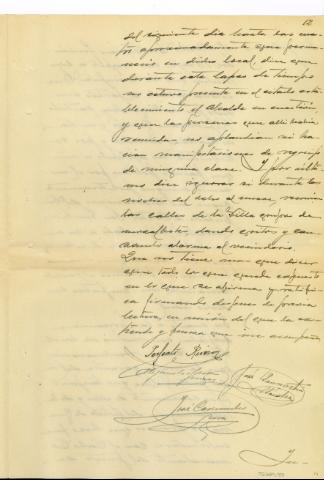 del siguiente dia hasta las cua-
tro aproximadamente que perma-
necio en dicho local, dice que
durante este lapso de tiempo
no estuvo presente en el citado esta-
blecimiento el Alcalde en cuestión
y que las personas que alli habia
reunidas no aplaudian ni ha-
cian manifestaciones de regocijo
de ninguna clase. Y por ulti-
mo dice ignorar si durante la
noche del
las calles de la Villa grupos de
dando gritos y cau-
sando alarma al vecindario.
Que no tiene mas que decir
que todo lo que queda expuesto
en lo que se afirma y ratifi-
ca firmando despues de previa
lectura, en union del que la ex-
tiende y
Perfecto
José
José